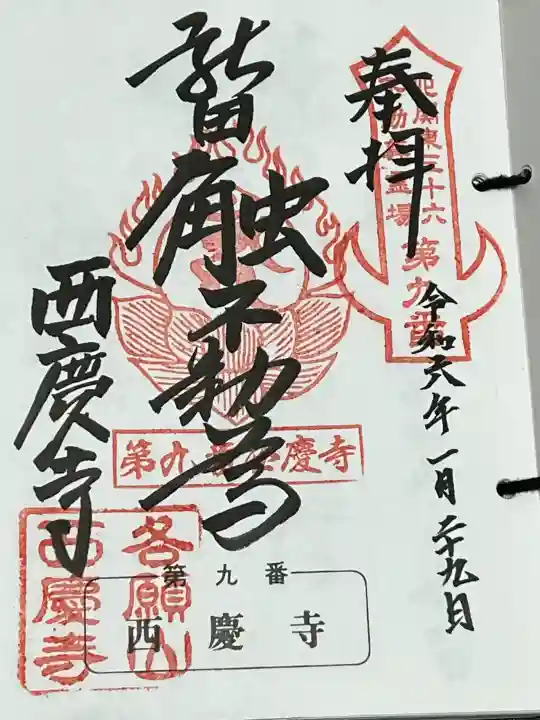 奉拝
北関東三十六
不動尊霊場
第九番
令和六年一月二十九日
触不動尊
西慶寺
第九番西慶寺
各願山
西慶寺
第九番
西慶寺